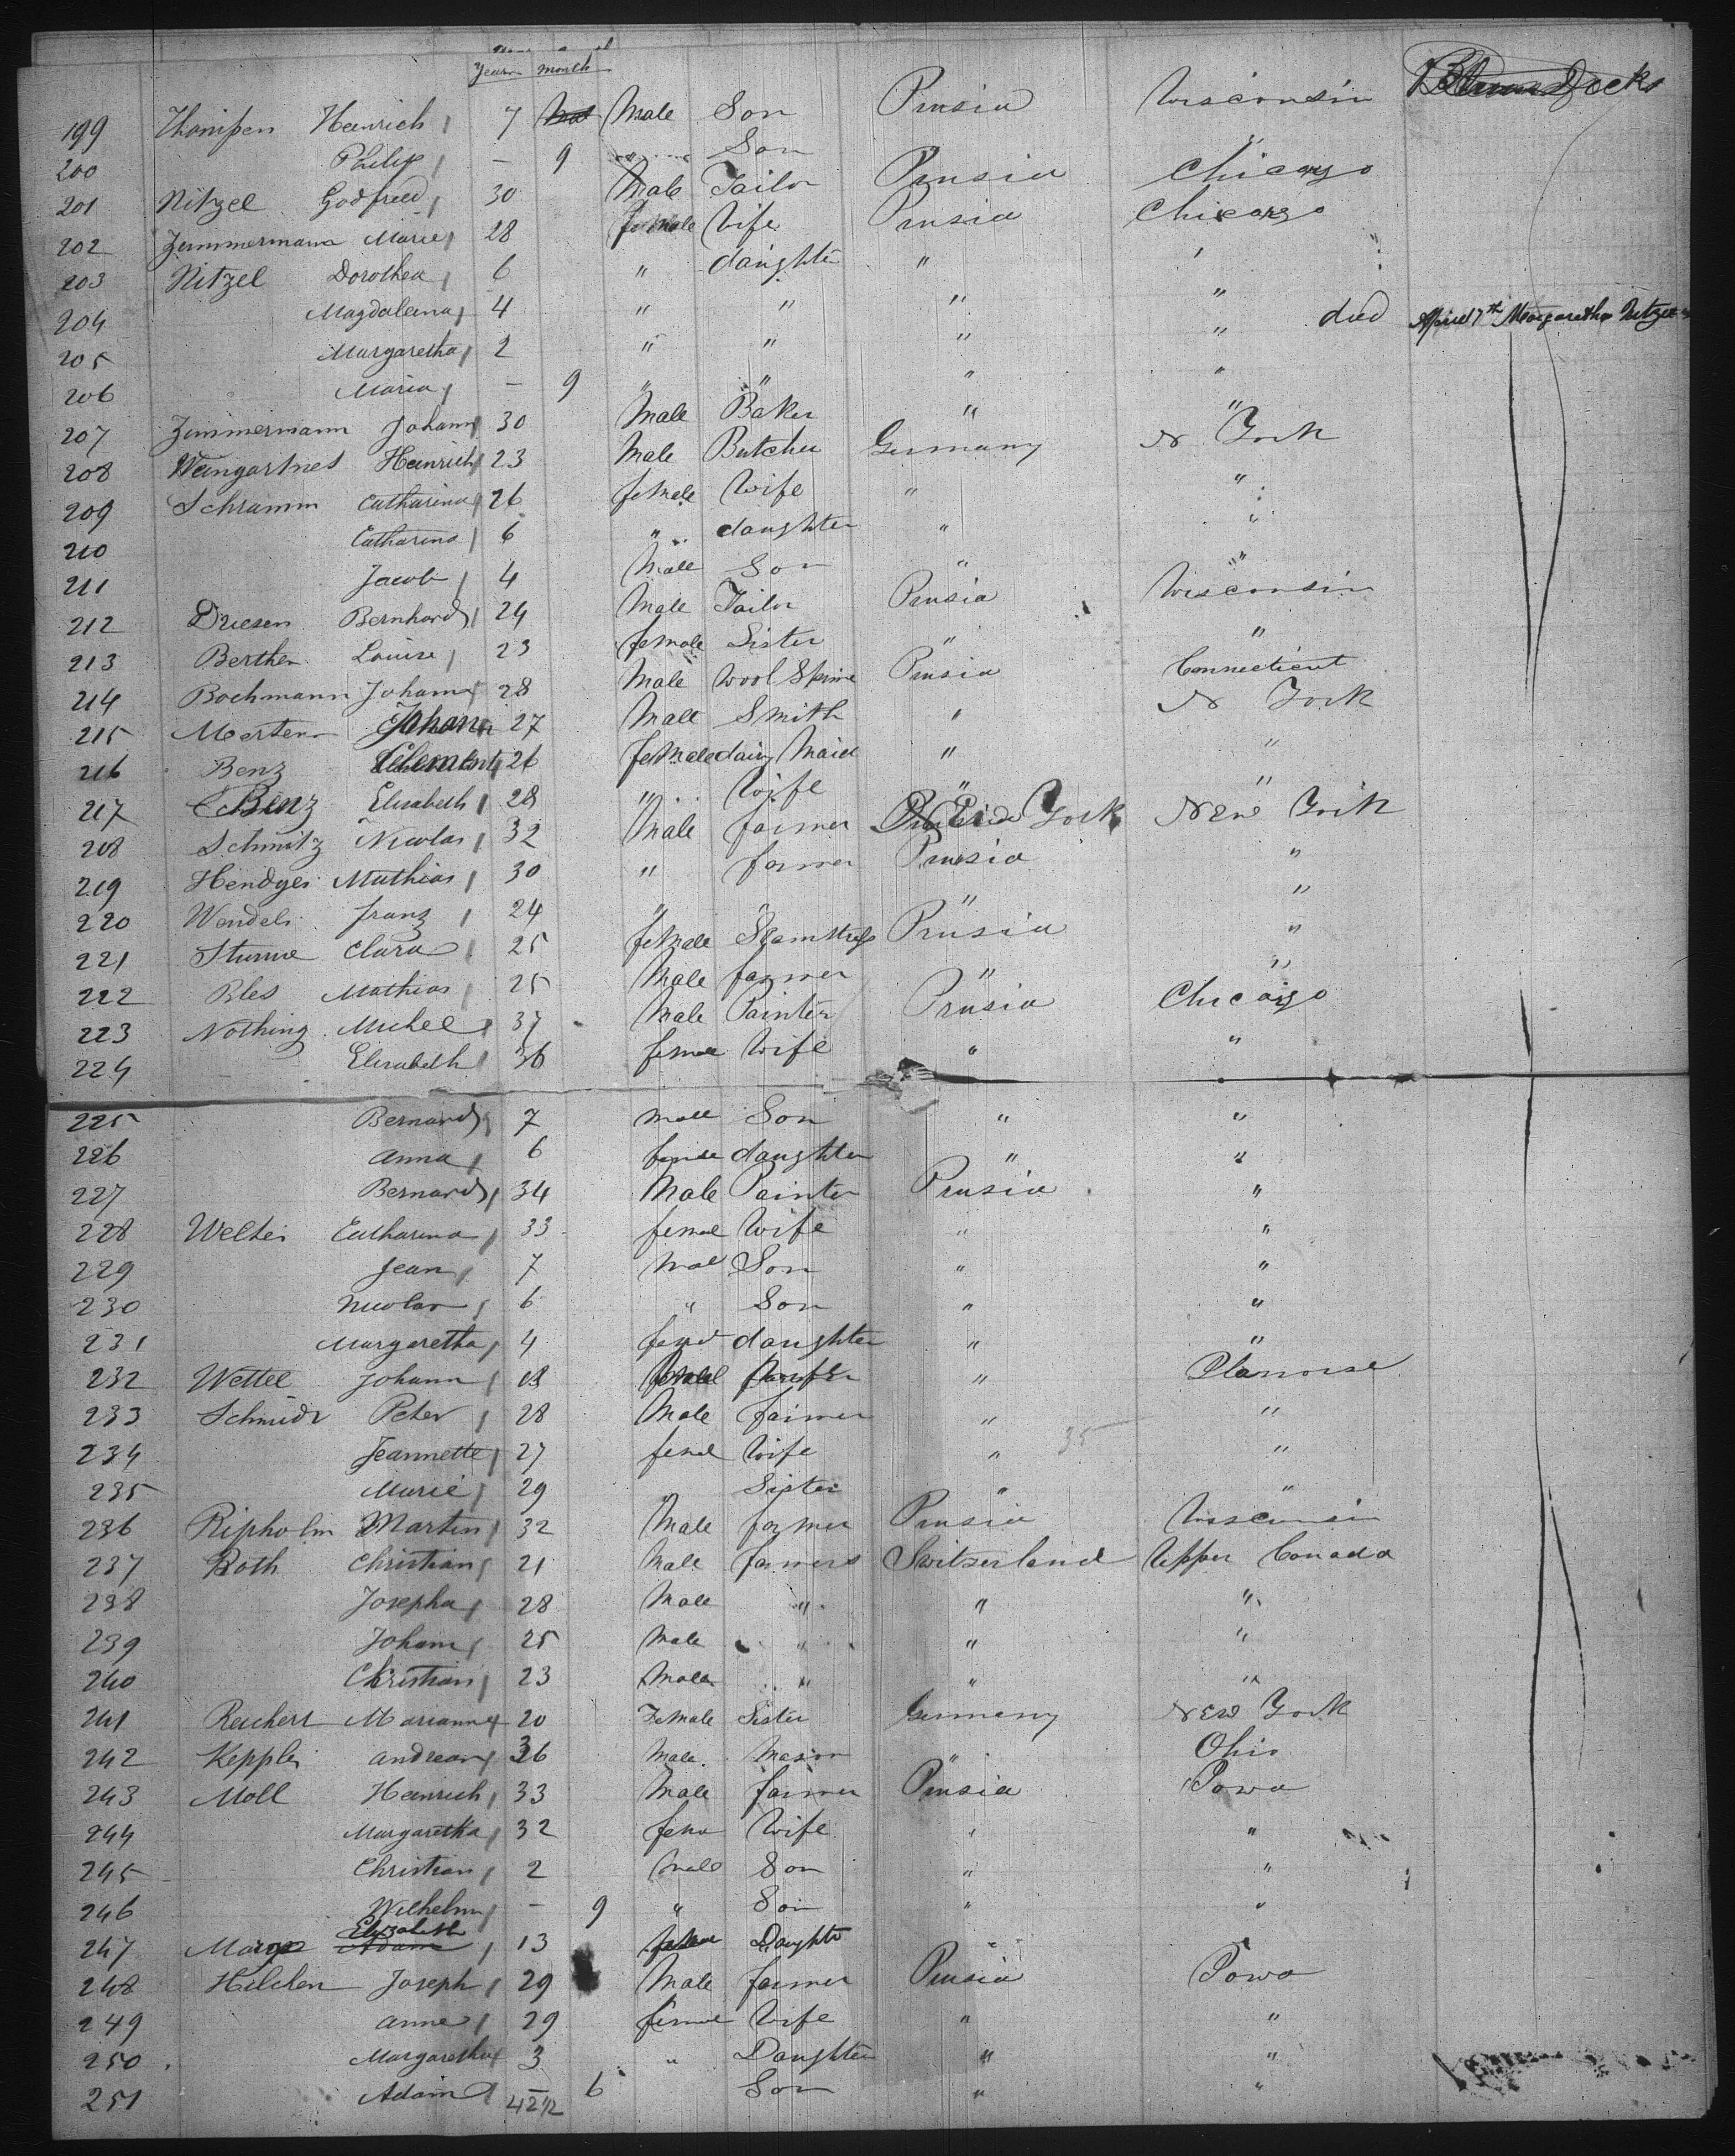 Years month
199 Thomsen Heinrich 7 Male Son Prusia Wisconsin
200 Philip — 9 " Son "
201 Nitzel Godfried 30 Male Tailor Prusia Chicago
202 Zummermann Marie 28 female Wife Prusia Chicago
203 Nitzel Dorothea 6 " daughter " "
204 Magdalena 4 " " " "
205 Margaretha 2 " " " " died April 7th Margaretha Nitzel
206 Maria — 9 " " " "
207 Zummermann Johann 30 Male Baker " "
208 Weingartnes Heinrich 23 Male Butcher Germany N York
209 Schramm Catharina 26 female Wife " "
210 Catharina 6 " daughter " "
211 Jacob 4 Male Son " "
212 Driesen Bernhard 24 Male Tailor Prusia Wisconsin
213 Berthen Louise 23 female Sister " "
214 Bochmann Johann 28 Male Wool Prusia Connecticut
215 Merten Johann 27 Male Smith " N York
216 Benz Clement 26 female dairy Maid " "
217 Benz Elisabeth 28 " Wife " "
208 Schmitz Nicolas 32 Male farmer New York
219 Hendges Mathias 30 " farmer Prusia "
220 Wendels Franz 24 " " " "
221 Sturme Clara 25 female Seamstress Prusia "
222 Bles Mathias 25 Male farmer " "
223 Nothing Michel 37 Male Painter Prusia Chicago
224 Elisabeth 36 female Wife " "
225 Bernard 7 male Son " "
226 Anna 6 daughter " "
227 Bernard 34 Male Painter Prusia "
228 Welter Catharina 33 femal Wife " "
229 Jean 7 Mal Son " "
230 Nicolas 6 " Son " "
231 Margaretha 4 daughter " "
232 Wettel Johann 18 "
233 Schmidt Peter 28 Male farmer " "
234 Jeannette 27 femel Wife " "
235 Marie 29 " Sister " "
236 Ripholm Martin 32 Male farmer Prusia Wisconsin
237 Roth Christian 21 Male farmers Switzerland Upper Canada
238 Josepha 28 Male " " "
239 Johann 25 Male " " "
240 Christian 23 Male " " "
241 Reichert Marianne 20 Female Sister Germany New York
242 Keppler Andreas 36 Male Mason " Ohio
243 Moll Heinrich 33 Male farmer Prusia Iowa
244 Margaretha 32 Wife " "
245 Christian 2 Male Son " "
246 Wilhelm — 9 " Son " "
247 Elizabeth 13 Daughter " "
248 Hilchen Joseph 29 Male farmer Prusia Iowa
249 Anne 29 Wife " "
250 Margaretha 3 " Daughter " "
251 Adam — 6 Son " "